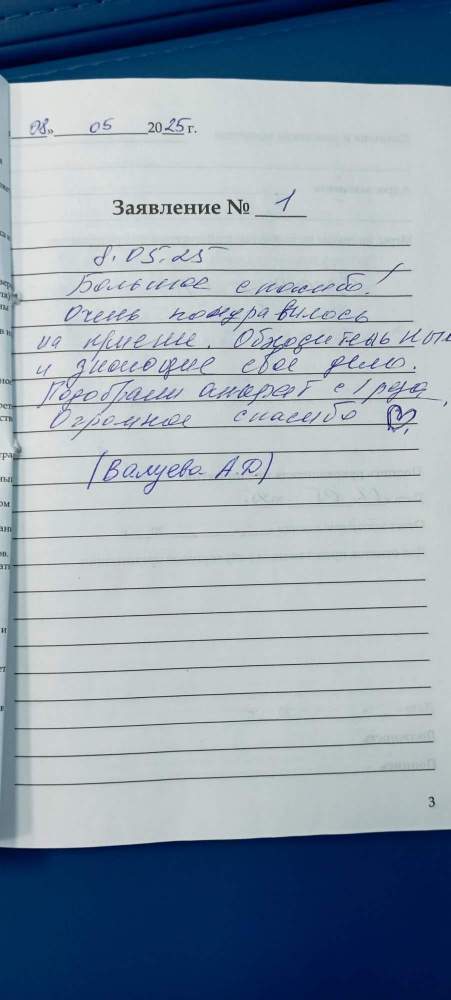 08» 05 2025 г.
Заявление № 1
8.05.25
Большое спасибо!
Очень пондравилось
на приеме. Обходительные
и знающие свое дело.
Подобрали аппарат с 1 раза.
Огромное спасибо
(Валуева А.Д.)
3